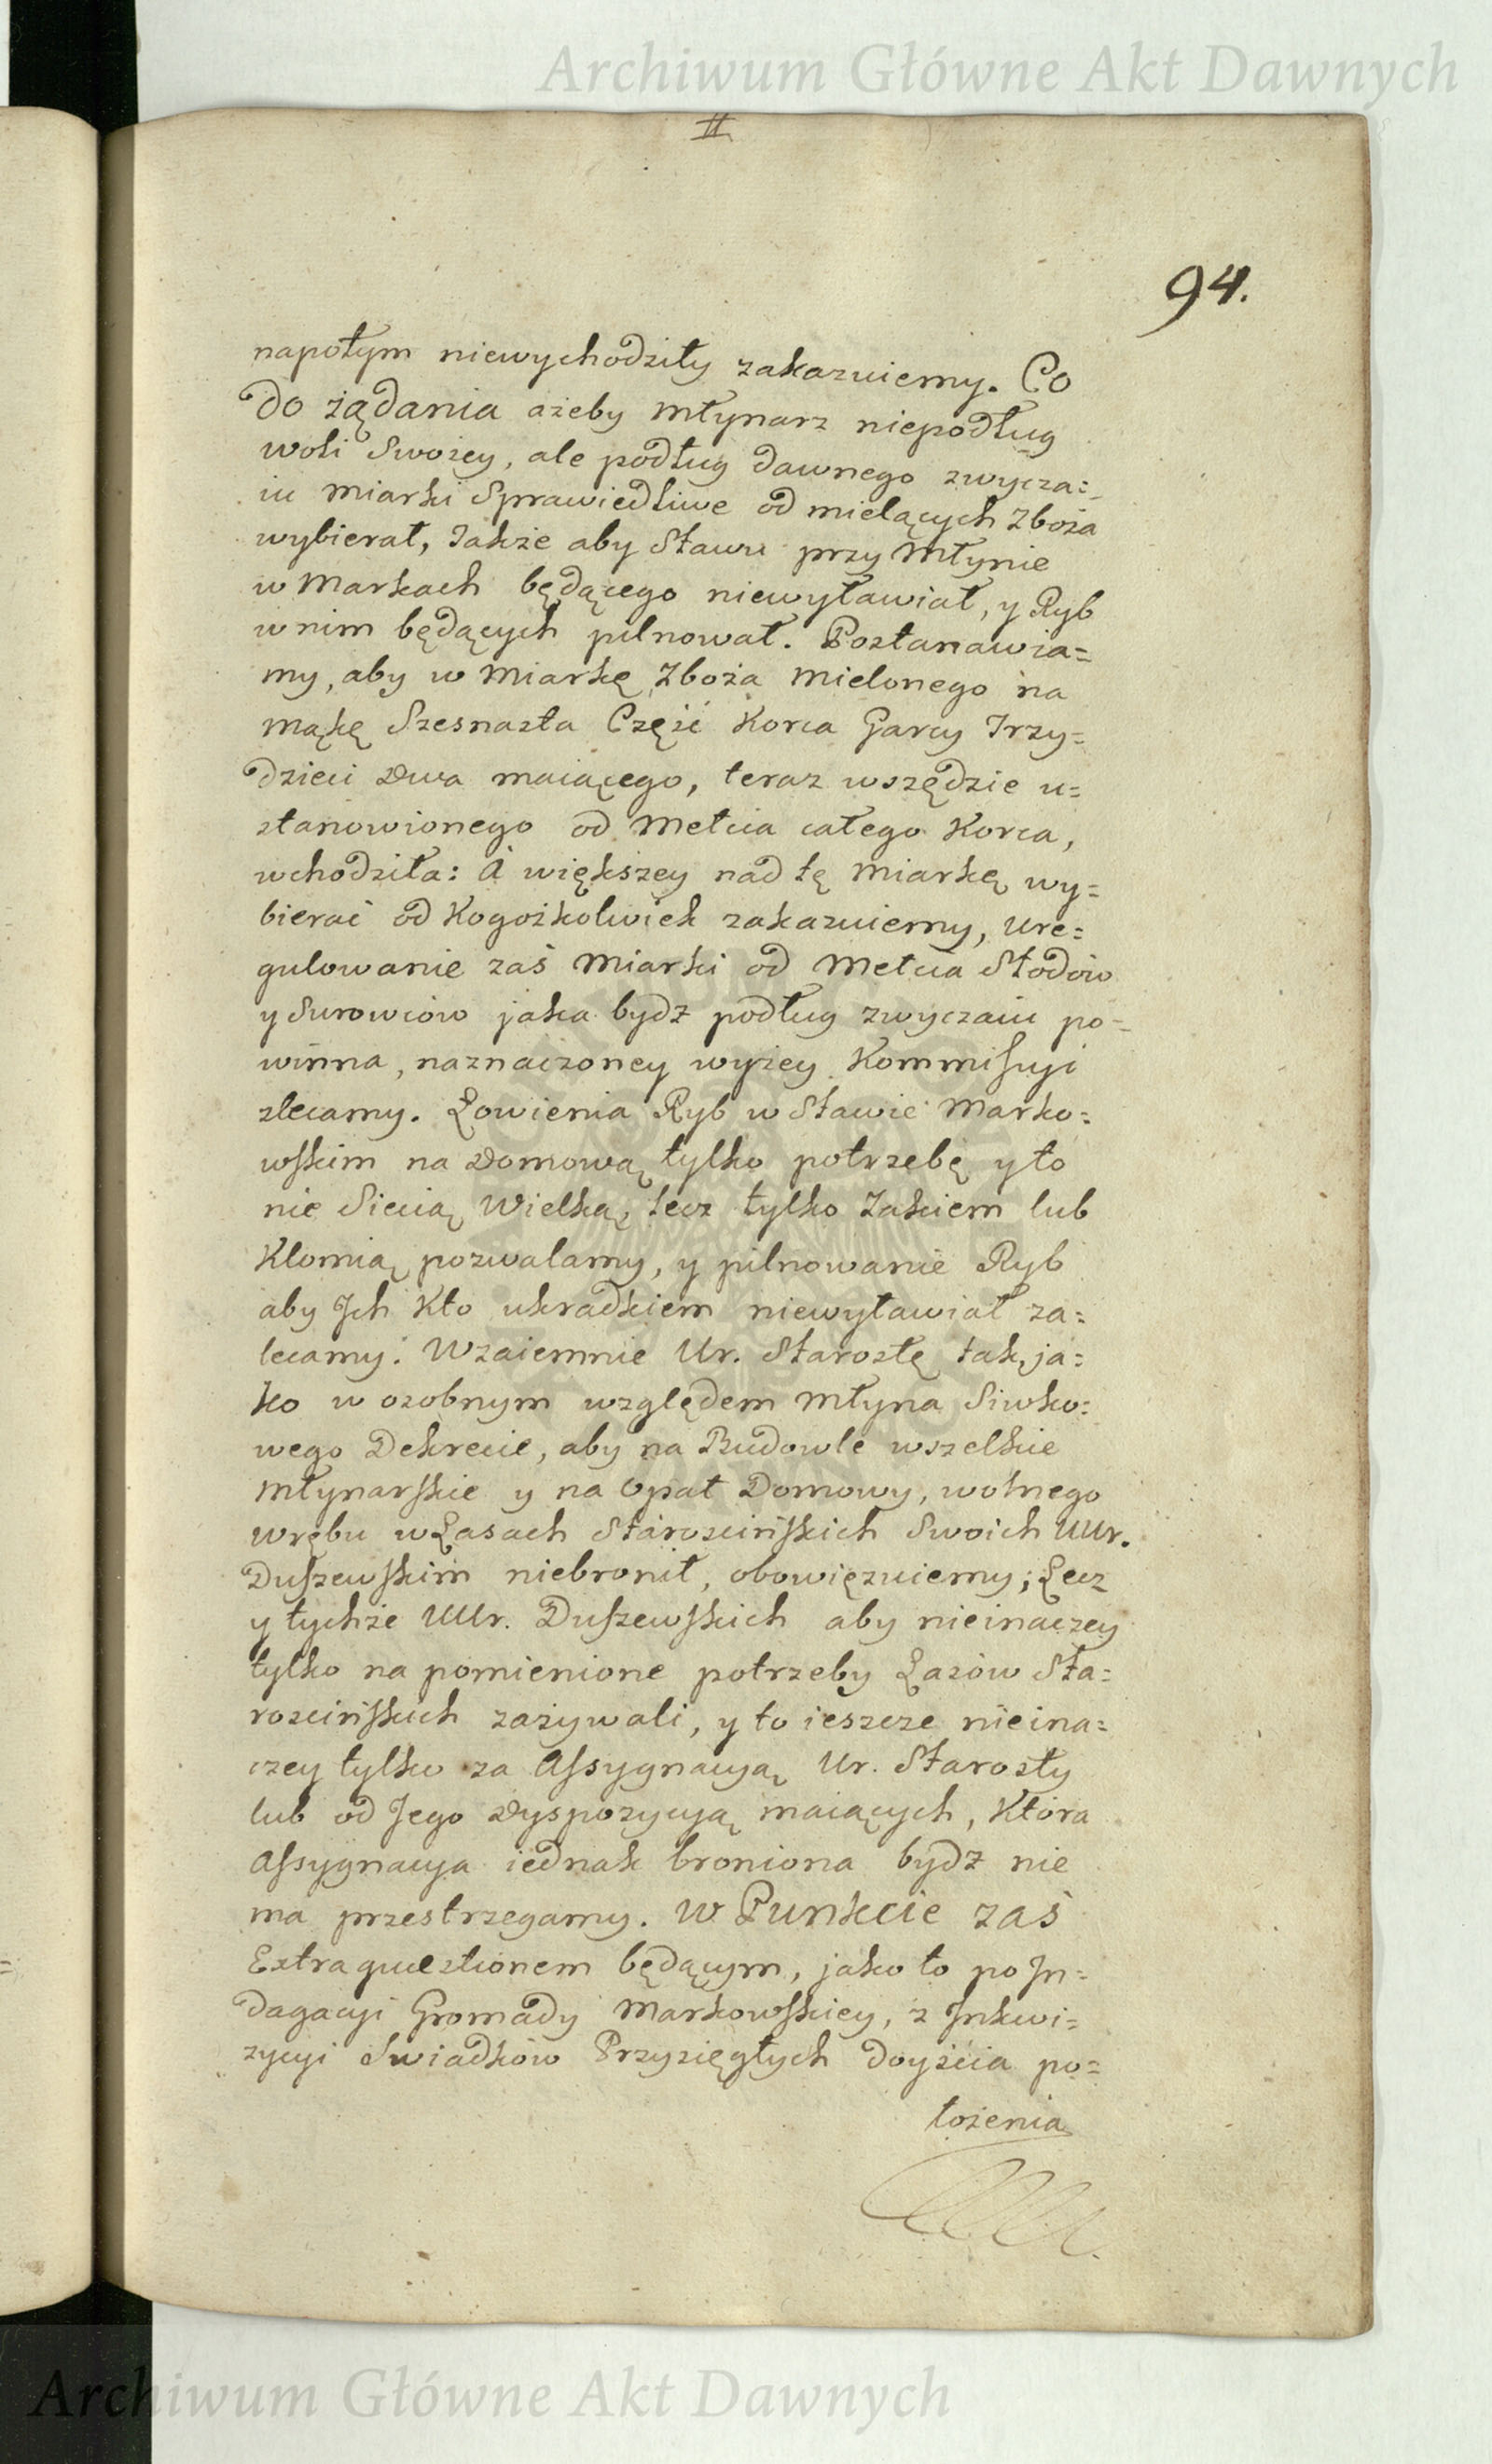 Archiwum Główne Akt Dawnych
94.
napotym niewychodziły zakazuiemy. Co
do żądania ażeby Młynarz niepodług
woli Swoiey, ale podług dawnego zwycza=
iu Miarki Sprawiedliwe od mielących Zboża
wybierał, Także aby Stawu przy Młynie
w Markach będącego niewyławiał, y Ryb
w nim będących pilnował. Postanawia=
my, aby w Miarkę Zboża Mielonego na
Mąkę Szesnasta Część Korca Garcy Trzy=
dzieci Dwa maiącego, teraz wszędzie u=
stanowionego od Mełcia całego Korca,
wchodziła: A większey nad tę Miarkę wy=
bierać od Kogożkolwiek zakazuiemy, Ure=
gulowanie zaś Miarki od Mełcia Słodów
y Surowców jaka bydz podług zwyczaiu po=
winna, naznaczoney wyżey Kommissyi
zlecamy. Łowienia Ryb w Stawie Marko=
wskim na Domową tylko potrzebę y to
nie Siecią Wielką, lecz tylko Żakiem lub
Kłomią pozwalamy, y pilnowanie Ryb
aby Jch Kto ukradkiem niewyławiał za=
lecamy. Wzaiemnie Ur. Starostę tak, ja=
ko w osobnym względem Młyna Siwko=
wego Dekrecie, aby na Budowle wszelkie
Młynarskie y na Opał Domowy, wolnego
wrębu w Lasach Starościńskich Swoich UUr.
Duszewskim niebronił, obowięzuiemy; Lecz
y tychże UUr. Duszewskich aby nieinaczey
tylko na pomienione potrzeby Lasów Sta=
rościńskich zażywali, y to ieszcze nieina=
czey tylko za Assygnacyą Ur. Starosty
lub od Jego Dyspozycyą maiących, Która
Assygnacya iednak broniona bydz nie
ma przestrzegamy. W Punkcie zaś
Extraquestionem będącym, jako to po Jn=
dagacyi Gromady Markowskiey, z Jnkwi=
zycyi Swiadków Przysięgłych Doyścia po=
łożenia
Archiwum Główne Akt Dawnych